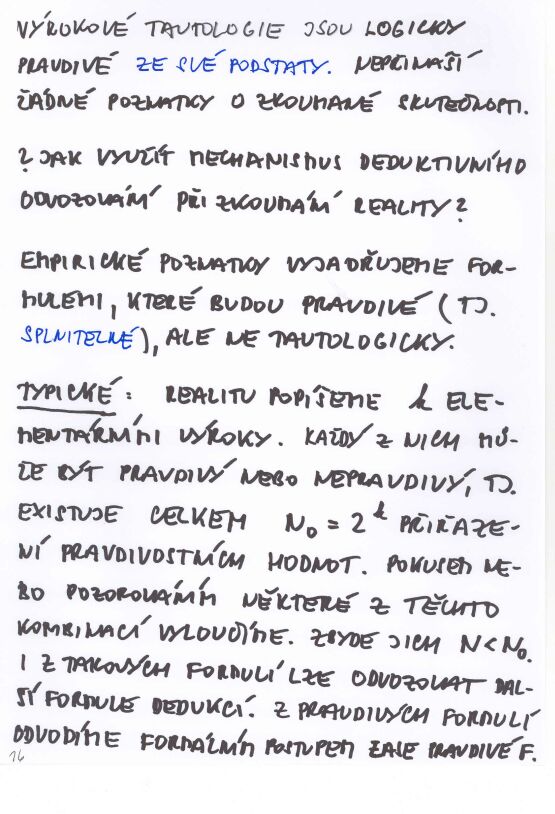 VÝROKOVÉ TAUTOLOGIE JSOU LOGICKY
PRAVDIVÉ ZE SVÉ PODSTATY. NEPŘINÁŠÍ
ŽÁDNÉ POZNATKY O ZKOUMANÉ SKUTEČNOSTI.
? JAK VYUŽÍT MECHANISMUS DEDUKTIVNÍHO
ODVOZOVÁNÍ PŘI ZKOUMÁNÍ REALITY?
EMPIRICKÉ POZNATKY VYJADŘUJEME FOR-
MULEMI, KTERÉ BUDOU PRAVDIVÉ (TJ.
SPLNITELNÉ), ALE NE TAUTOLOGICKY.
TYPICKÉ: REALITU POPÍŠEME k ELE-
MENTÁRNÍMI VÝROKY. KAŽDÝ Z NICH MŮ-
ŽE BÝT PRAVDIVÝ NEBO NEPRAVDIVÝ, TJ.
EXISTUJE CELKEM N₀ = 2ᵏ PŘIŘAZE-
NÍ PRAVDIVOSTNÍCH HODNOT. POKUSEM NE-
BO POZOROVÁNÍM NĚKTERÉ Z TĚCHTO
KOMBINACÍ VYLOUČÍME. ZBYDE JICH N<N₀.
I Z TAKOVÝCH FORMULÍ LZE ODVOZOVAT DAL-
ŠÍ FORMULE DEDUKCÍ. Z PRAVDIVÝCH FORMULÍ
ODVODÍME FORMÁLNÍM POSTUPEM ZASE PRAVDIVÉ F.
16